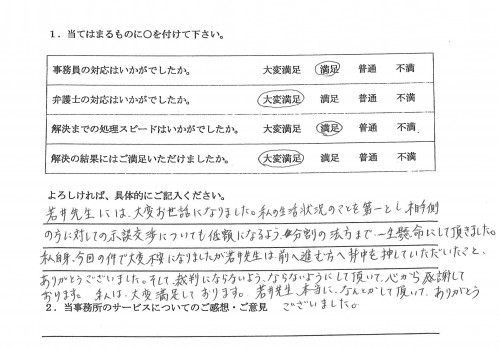 1．当てはまるものに○を付けて下さい。
事務員の対応はいかがでしたか。 大変満足 満足 普通 不満
弁護士の対応はいかがでしたか。 大変満足 満足 普通 不満
解決までの処理スピードはいかがでしたか。 大変満足 満足 普通 不満
解決の結果にはご満足いただけましたか。 大変満足 満足 普通 不満
よろしければ、具体的にご記入ください。
若井先生には、大変お世話になりました。私の生活状況のことを第一とし 相手側
の方に対しての示談交渉についても低額になるよう、分割の法方まで、一生懸命にして頂きました。
私自身、今回の件で大変不安になりましたが若井先生は、前へ進む方へ背中を押していただいたこと、
ありがとうございました。そして、裁判にならないよう、ならないようにして頂いて、心から感謝して
おります。 私は、大変満足しております。 若井先生、本当に、なんとかして頂いて、ありがとう
ございました。
2．当事務所のサービスについてのご感想・ご意見